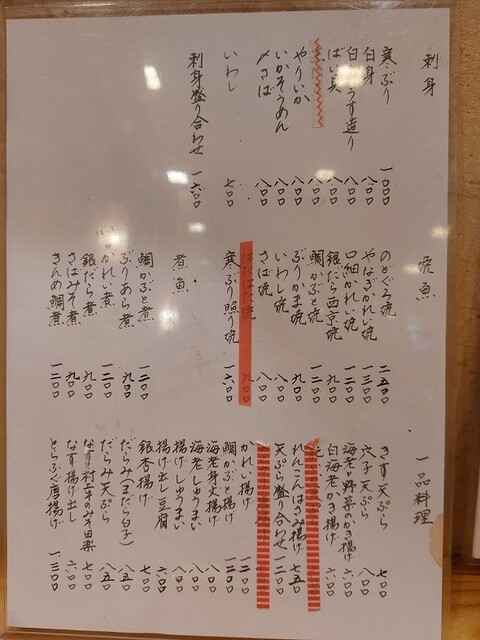 刺身
寒ぶり 一〇〇〇
白身 八〇〇
白身うす造り 八〇〇
ばい貝 八〇〇
やりいか 八〇〇
いかそうめん 八〇〇
〆さば 八〇〇
いわし 七〇〇
刺身盛り合わせ 一六〇〇
焼魚
のどぐろ焼 二五〇〇
やなぎかれい焼 一三〇〇
口細かれい焼 一二〇〇
銀だら西京焼 九〇〇
鯛かぶと焼 一二〇〇
ぶりかま焼 九〇〇
いわし焼 八〇〇
さば焼 八〇〇
はたはた焼 九〇〇
寒ぶり照り焼 一六〇〇
煮魚
鯛かぶと煮 一二〇〇
ぶりあら煮 九〇〇
かれい煮 一二〇〇
銀だら煮 九〇〇
さばみそ煮 九〇〇
きんめ鯛煮 一二〇〇
一品料理
きす天ぷら 七〇〇
穴子天ぷら 八〇〇
海老と野菜のかき揚げ 六〇〇
白海老かき揚げ 六〇〇
れんこんはさみ揚げ 七五〇
天ぷら盛り合わせ 一二〇〇
かれい揚げ 一二〇〇
鯛かぶと揚げ 一二〇〇
海老身丈揚げ 八〇〇
海老しゅうまい 八〇〇
揚げしゅうまい 八〇〇
揚げ出し豆腐 六〇〇
銀杏揚げ 七〇〇
だらみ(まだら白子) 八五〇
だらみ天ぷら 八五〇
なす村上牛のみそ田楽 七〇〇
なす揚げ出し 六〇〇
とらふぐ唐揚げ 一、三〇〇